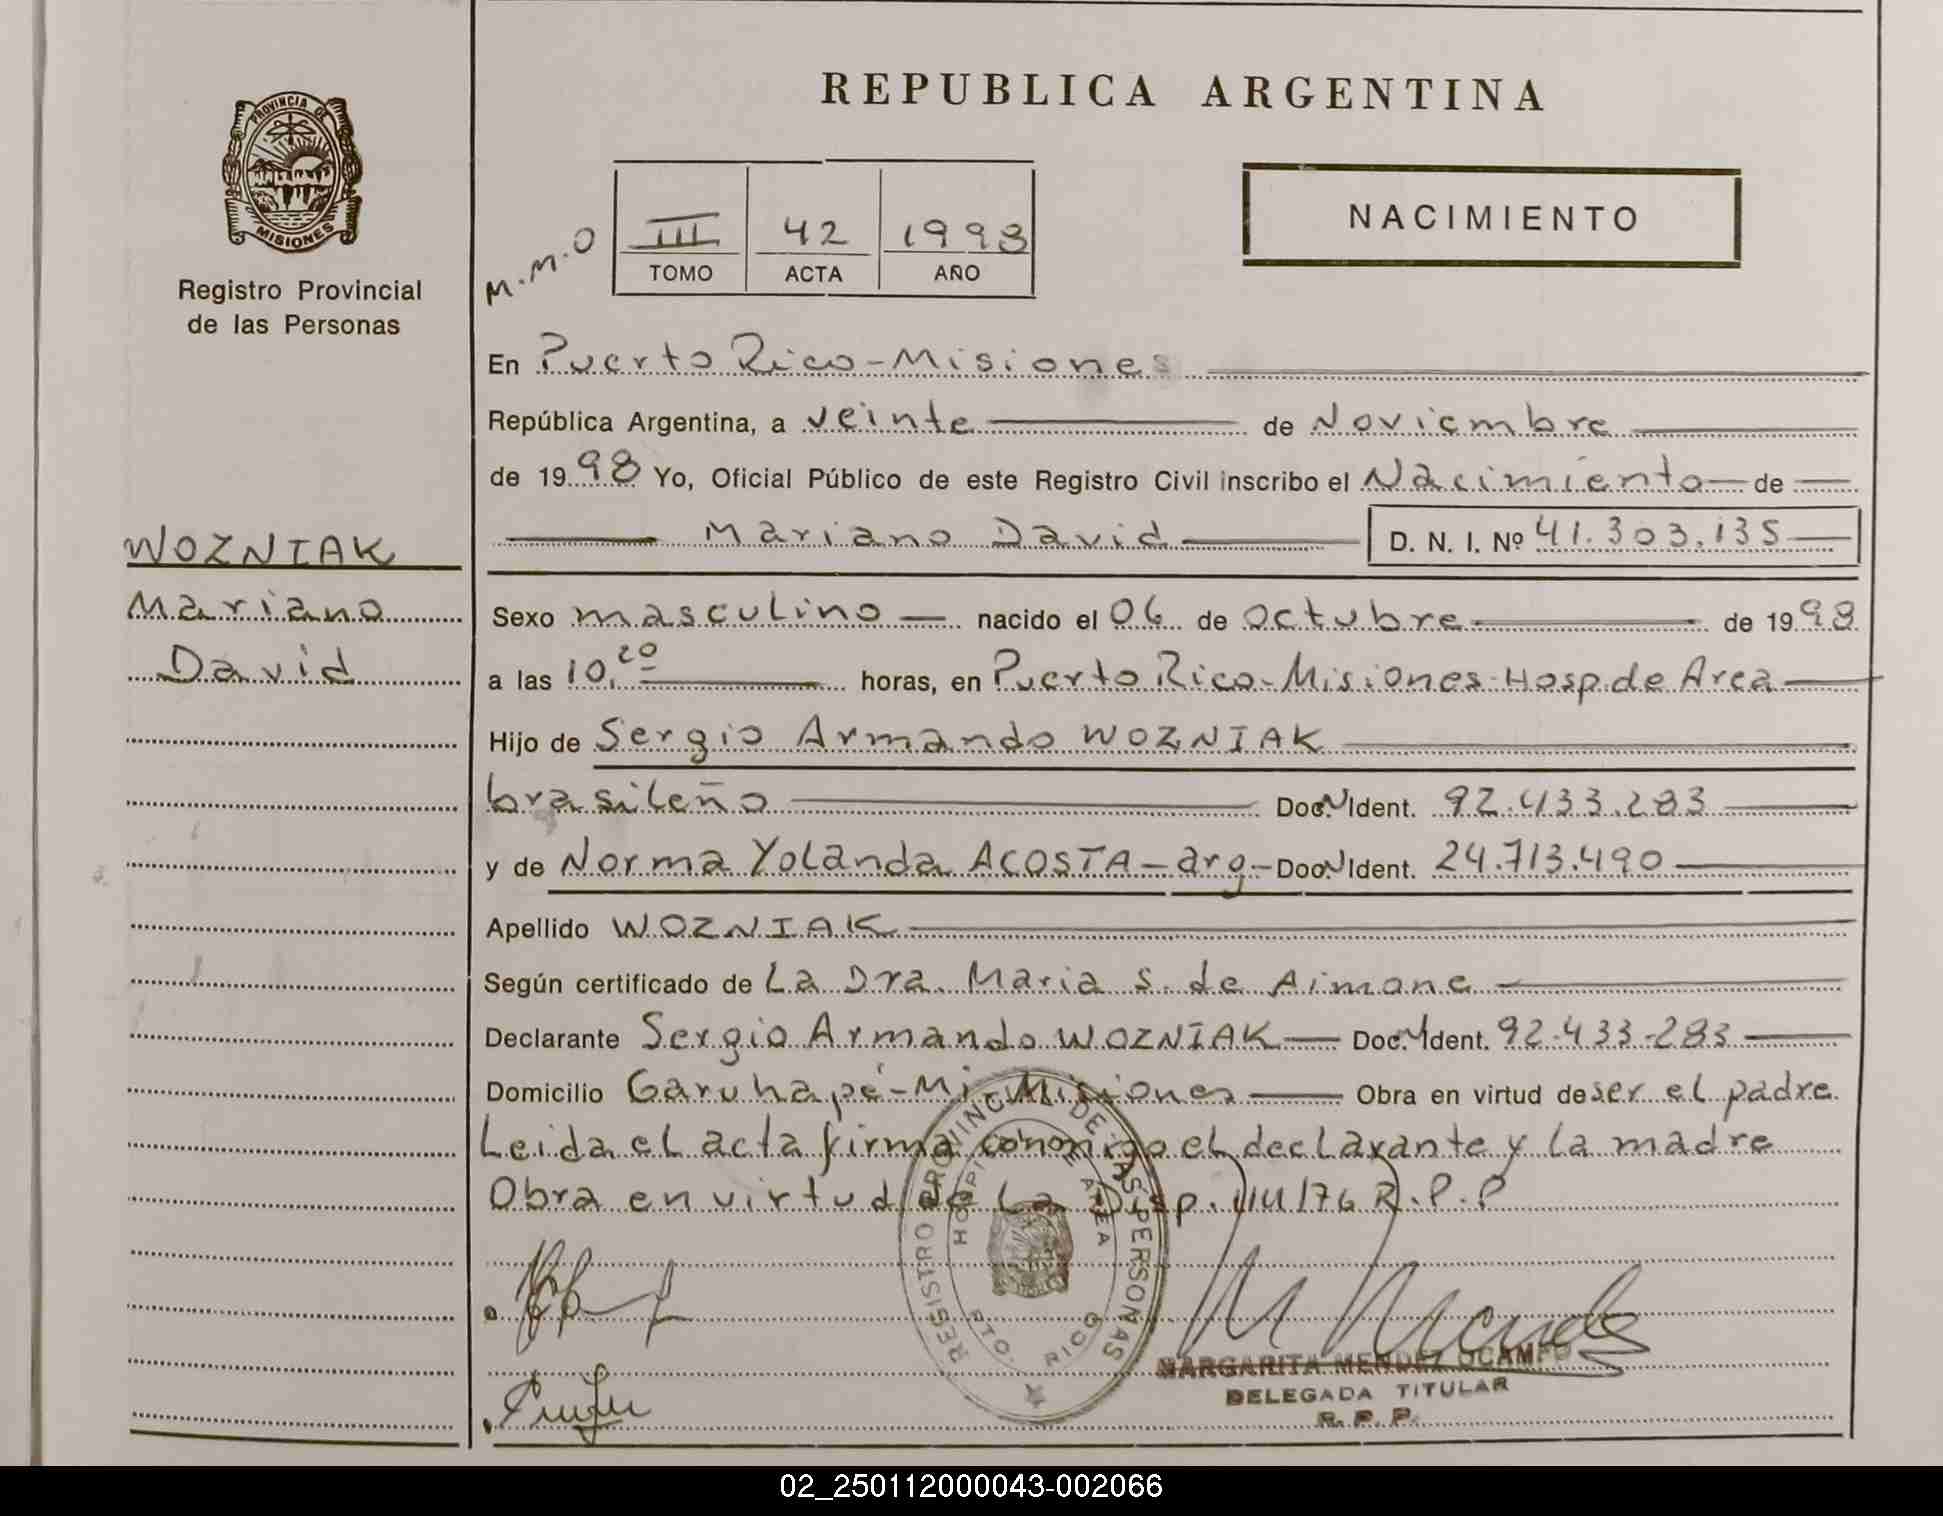 REPUBLICA ARGENTINA
PROVINCIA DE
MISIONES
Registro Provincial
de las Personas
M.M.O
III 42 1998
TOMO ACTA AÑO
NACIMIENTO
En Puerto Rico-Misiones
República Argentina, a veinte de Noviembre
de 1998 Yo, Oficial Público de este Registro Civil inscribo el Nacimiento de
Mariano David D. N. I. Nº 41.303.135
WOZNIAK
Mariano
David
Sexo masculino nacido el 06 de octubre de 1998
a las 10,20 horas, en Puerto Rico-Misiones-Hosp.de Area
Hijo de Sergio Armando WOZNIAK
brasileño Doc.N Ident. 92.433.283
y de Norma Yolanda ACOSTA-arg- Doc.N Ident. 24.713.490
Apellido WOZNIAK
Según certificado de La Dra. Maria S. de Aimone
Declarante Sergio Armando WOZNIAK Doc.N Ident. 92.433-283
Domicilio Garuhapé-Mi-Misiones Obra en virtud de ser el padre
Leida el acta firma conmigo el declarante y la madre
Obra en virtud de La Disp. /76 R.P.P
REGISTRO PROVINCIAL DE LAS PERSONAS
HOSPI DE AREA
PTO. RICO
MARGARITA MENDEZ OCAMPO
DELEGADA TITULAR
R.P.P.
02_250112000043-002066